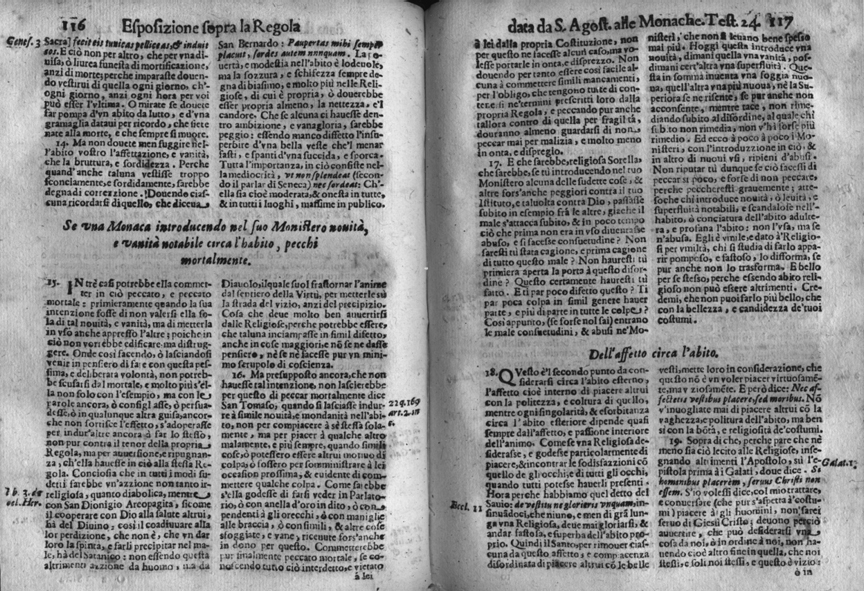 116 Esposizione sopra la Regola
Genes. 3
Sacra] fecit eis tunicas pelliceas, & induit
eos. E ciò non per altro, che per vna di-
uisa, ò liurea funesta di mortificazione,
anzi di morte; perche imparaste douen-
do vestirui di quella ogni giorno, ch'o-
gni giorno, anzi ogni hora per voi
può esser l'vltima. O mirate se douete
far pompa d'vn abito da lutto, e d'vna
gramaglia dataui per ricordo, che siete
nate alla morte, e che sempre si muore.
14. Ma non douete men fuggire nell'-
abito vostro l'affettazione, e vanità,
che la bruttura, e sordidezza. Perche
quand'anche taluna vestisse troppo
sconciamente, e sordidamente, sarebbe
degna di correzione. Douendo ciasc-
cuna ricordarsi di quello, che diceua
San Bernardo: Paupertas mihi semper
placuit, sordes autem nunquam. La po-
uertà, e modestia nell'abito è lodeuole,
ma la sozzura, e schifezza sempre de-
gna di biasimo, e molto più nelle Reli-
giose, di cui è propria, ò douerebbe
esser propria almeno, la nettezza, e'l
candore. Che se alcuna ci hauesse den-
tro ambizione, e vanagloria, sarebbe
peggio: essendo manco difetto l'insu-
perbire d'vna bella veste che'l menar
fasti, e spanti d'vna succida, e sporca.
Tutta l'importanza, in ciò consiste nel-
la mediocrità, vt non splendeat (secon-
do il parlar di Seneca) nec sordeat: Ch'-
ella sia cioè moderata, & onesta in tutte,
& in tutti i luoghi, massime in publico.
Se vna Monaca introducendo nel suo Monistero nouità,
e vanità notabile circa l'habito, pecchi
mortalmente.
15. IN tre casi potrebbe ella commet-
ter in ciò peccato, e peccato
mortale: primieramente quando la sua
intenzione fosse di non valersi ella so-
la di tal nouità, e vanità, ma di metterla
in vso anche appresso l'altre; poiche in
ciò non vorrebbe edificare, ma distrug-
gere. Onde così facendo, ò lasciandosi
venir in pensiero di fare con questa pes-
sima, e deliberata volontà, non potreb-
be scusarsi dal mortale, e molto più s'el-
la non solo con l'esempio, ma con le
parole ancora, ò consigliasse, ò persua-
desse, ò in qualunque altra guisa, ancor-
che non sortisce l'effetto, s'adoperasse
per indur altre ancora à far lo stesso:
non pur contra il tenor della propria
Regola, ma per auuersione, e ripugnan-
za, ch'ella hauesse in ciò alla stessa Re-
gola. Conciosia che in tutti i modi sud-
detti sarebbe vn'azzione non tanto ir-
religiosa, quanto diabolica, mentre
con San Dionigio Areopagita, sì come
il cooperare con Dio alla salute altrui,
hà del Diuino: così il coadiuuare alla
lor perdizione, che non è, che vn dar
loro la spinta, e farli precipitar nel ma-
le, hà del Satanico: non essendo questa
altrimenti azzione da huomo, ma da
Diauolo, il quale suol frastornar l'anime
dal sentiero della Virtù, per metterle su
la strada del vizio, anzi del precipizio.
Cosa che deue molto ben auuertirsi
dalle Religiose, perche potrebbe essere,
che taluna inciampasse in simil difetto,
anche in cose maggiori: e nõ se ne dasse
pensiero, nè se ne facesse pur vn mini-
mo scrupolo di coscienza.
16. Ma presupposto ancora, che non
hauesse tal intenzione, non lascierebbe
per questo di peccar mortalmente dice
San Tomaso, quando si lasciasse indur-
re à simile nouità, e mondanità nell'abi-
to, non per compiacere à sè stessa sola-
mente, ma per piacer à qualche altro
malamente, e più sempre, quando simili
cose, ò potessero essere altrui motiuo di
colpa, ò fossero per somministrare à lei
occasion prossima, & euidente di com-
mettere qualche colpa. Come sarebbe
s'ella godesse di farsi veder in Parlato-
rio, ò con anella d'oro in dito, ò con
pendenti à gli orecchi, ò con maniglie
alle braccia, ò con simili, & altre cose
sfoggiate, e vane, riceuute fors'anche
in dono per questo. Commetterebbe
pur inalmente peccato mortale, se co-
noscendo tutto ciò interdetto, e vietato
à lei
2 2 4. 169
art. 2. in
Lib. 3. de
cel. Hier.
data da S. Agost. alle Monache. Test. 24. 117
à lei dalla propria Costituzione, non
per questo ne facesse alcun caso, ma vo-
lesse portarle in onta, e disprezzo. Non
douendo per tanto essere così facile al-
cuna à commettere simili mancamenti,
per l'obligo, che tengono tutte di con-
tenersi ne'termini prescritti loro dalla
propria Regola, e peccando pur anche
tallora contro di quella per fragiltà,
douranno almeno guardarsi di non
peccar mai per malizia, e molto meno
in onta, e dispregio.
17. E che sarebbe, religiosa Sorella,
che sarebbe, se tù introducendo nel tuo
Monistero alcuna delle sudette cose, &
altre fors'anche peggiori contra il tuo
Istituto, e taluolta contra Dio, passasse
subito in esempio frà le altre, giache il
male s'attacca subito, & in poco tempo
ciò che prima non era in vso diuentasse
abuso, e si facesse consuetudine? Non
saresti tù stata cagione, e prima cagione
di tutto questo male? Non hauresti tù
primiera aperta la porta à questo disor-
dine? Questo certamente hauresti tù
fatto. E ti par poco difetto questo? Ti
par poca colpa in simil genere hauer
parte, e più di parte in tutte le colpe?
Così appunto, (se forse nol sai) entrano
le male consuetudini, & abusi ne'Mo-
nisteri, che non si leuano bene spesso
mai più. Hoggi questa introduce vna
nouità, dimani quella vna vanità, pos-
dimani cert'altra vna superfluità. Que-
sta in somma inuenta vna foggia nuo-
ua, quell'altra vna più nuoua, nè la Su-
periora se ne risente, se pur anche non
acconsente, mentre tace, non rime-
diando subito al disordine, al quale chi
subito non rimedia, non v'hà forse più
rimedio. Ed ecco à poco à poco i Mo-
nisteri, con l'introduzzione in ciò, &
in altro di nuoui vsi, ripieni d'abusi.
Non riputar tù dunque se ciò facessi di
peccar sì poco, e forse di non peccare,
perche peccheresti grauemente; atte-
soche chi introduce nouità, ò leuità, e
superfluità notabili, e scandalose nell'-
habito, ò conciatura dell'abito adulte-
ra, e profana l'abito: non l'vsa, ma se
n'abusa. Egli è vmile, e dato à Religio-
si per vmiltà, chi si studia di farlo appa-
rir pomposo, e fastoso, lo disforma, se
pur anche non lo trasforma. E bello
per se stesso, perche essendo abito reli-
gioso non può essere altrimenti. Cre-
demi, che non puoi farlo più bello, che
con la bellezza, e candidezza de'tuoi
costumi.
Dell'affetto circa l'abito.
18. QVesto è'l secondo punto da con-
siderarsi circa l'abito esterno,
l'affetto cioè interno di piacer altrui
con la politezza, e coltura di quello,
mentre ogni singolarità, & esorbitanza
circa l'abito esteriore dipende quasi
sempre dall'affetto, e passione interiore
dell'animo. Come se vna Religiosa de-
siderasse, e godesse particolarmente di
piacere, & incontrar le sodisfazzioni cõ
quello de gli occhi, e di tutti gli occhi,
quando tutti potesse hauerli presenti.
Hora perche habbiamo quel detto del
Sauio: In vestitu ne glorieris vnquam, in-
sinuandoci, che niuno, e men di grã lun-
ga vna Religiosa, deue mai gloriarsi, &
andar fastosa, e superba dell'abito pro-
prio. Quindi il Santo, per rimouer ciasc-
cuna da questo affetto, e compiacenza
disordinata di piacere altrui cõ le belle
vesti, mette loro in considerazione, che
questo nõ è vn voler piacer virtuosamẽ-
te, ma viziosamẽte. E però dice: Nec af-
fectetis vestibus placere, sed moribus. Nõ
v'inuogliate mai di piacere altrui cõ la
vaghezza, e politura dell'abito, ma ben
sì con la bõtà, e religiosità de'costumi.
19. Sopra di che, perche pare che nè
meno sia ciò lecito alle Religiose, inse-
gnando altrimenti l'Apostolo, sù l'e-
pistola prima à i Galati, doue dice: Si
hominibus placerem, seruus Christi non
essem. S'io volessi dice, col mio trattare,
e conuersare (che pur s'aspetta à costu-
mi) piacere à gli huomini, non sarei
seruo di Giesù Christo; deuono perciò
auuertire, che può desiderarsi vna
cosa da noi, ò in ordine à noi, non ha-
uendo cioè altro fine in quella, che noi
stessi, e soli noi stessi, e questo è vizio;
ò in
Eccl. 11
Galat. 1.